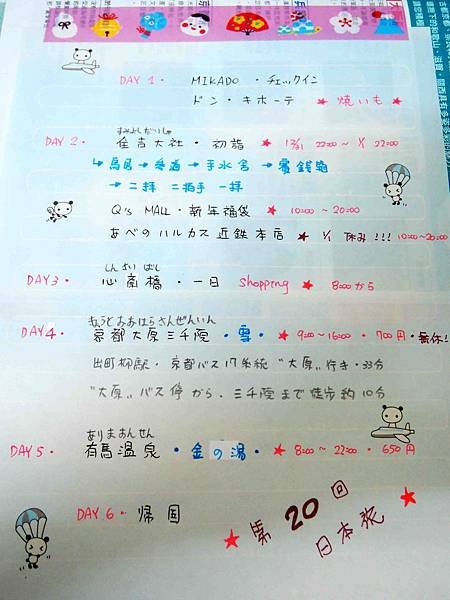 DAY 1・ MIKADO ・チェックイン
ドン・キホーテ ★ 焼いも ★
すみよしたいしゃ
DAY 2・ 住吉大社・初詣 ★ 12/31 22:00~ 1/1 22:00
↳ 鳥居 → 参道 → 手水舎 → 賽銭箱
→ 二拝 二拍手 一拝
Q's MALL・新年福袋 ★ 10:00~20:00
あべのハルカス 近鉄本店 ★ 1/1 休み!!! 10:00~20:00
しんさいばし
DAY3・ 心斎橋・一日 shopping ★ 8:00から
きょうとおおはらさんぜんいん
DAY4・ 京都大原三千院・雪・ ★ 9:00~16:00 ・ 700円・無休!
出町柳駅・京都バス17系統 "大原"行き・33分
"大原"バス停から・三千院まで徒歩約10分
ありまおんせん
DAY5・ 有馬温泉・金の湯・ ★ 8:00~22:00・650円
DAY 6・ 帰国
★ 第20回 ★
日本旅